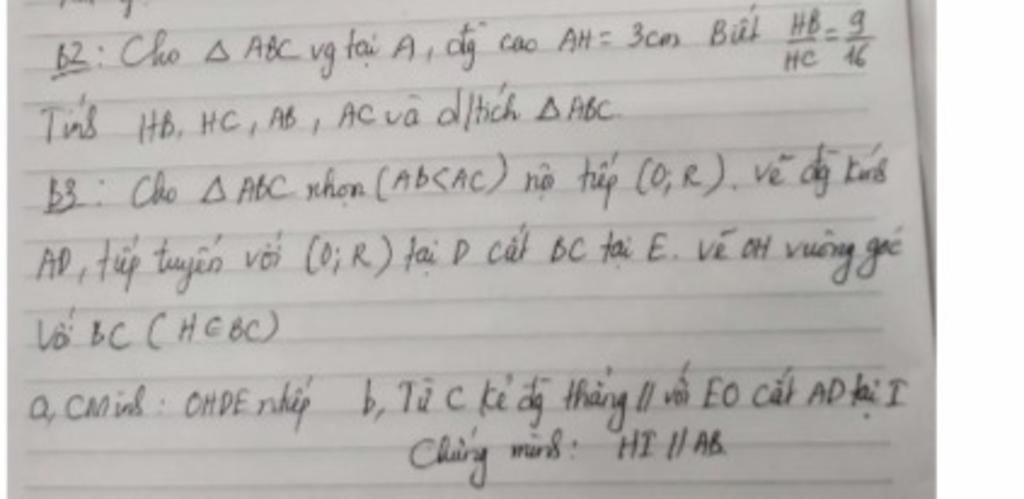 B2: Cho Δ ABC vg tại A, đg cao AH = 3cm Biết HB/HC = 9/16
Tính HB, HC, AB, AC và d/tích Δ ABC.
B3: Cho Δ ABC nhọn (AB<AC) nộ tiếp (O; R). vẽ đg kính
AD, tiếp tuyến với (O; R) tại D cắt BC tại E. vẽ OH vuông góc
với BC (H ∈ BC)
a, CMinh: OHDE ntiếp b, Từ C kẻ đg thẳng // với EO cắt AD tại I
Chứng minh: HI // AB.